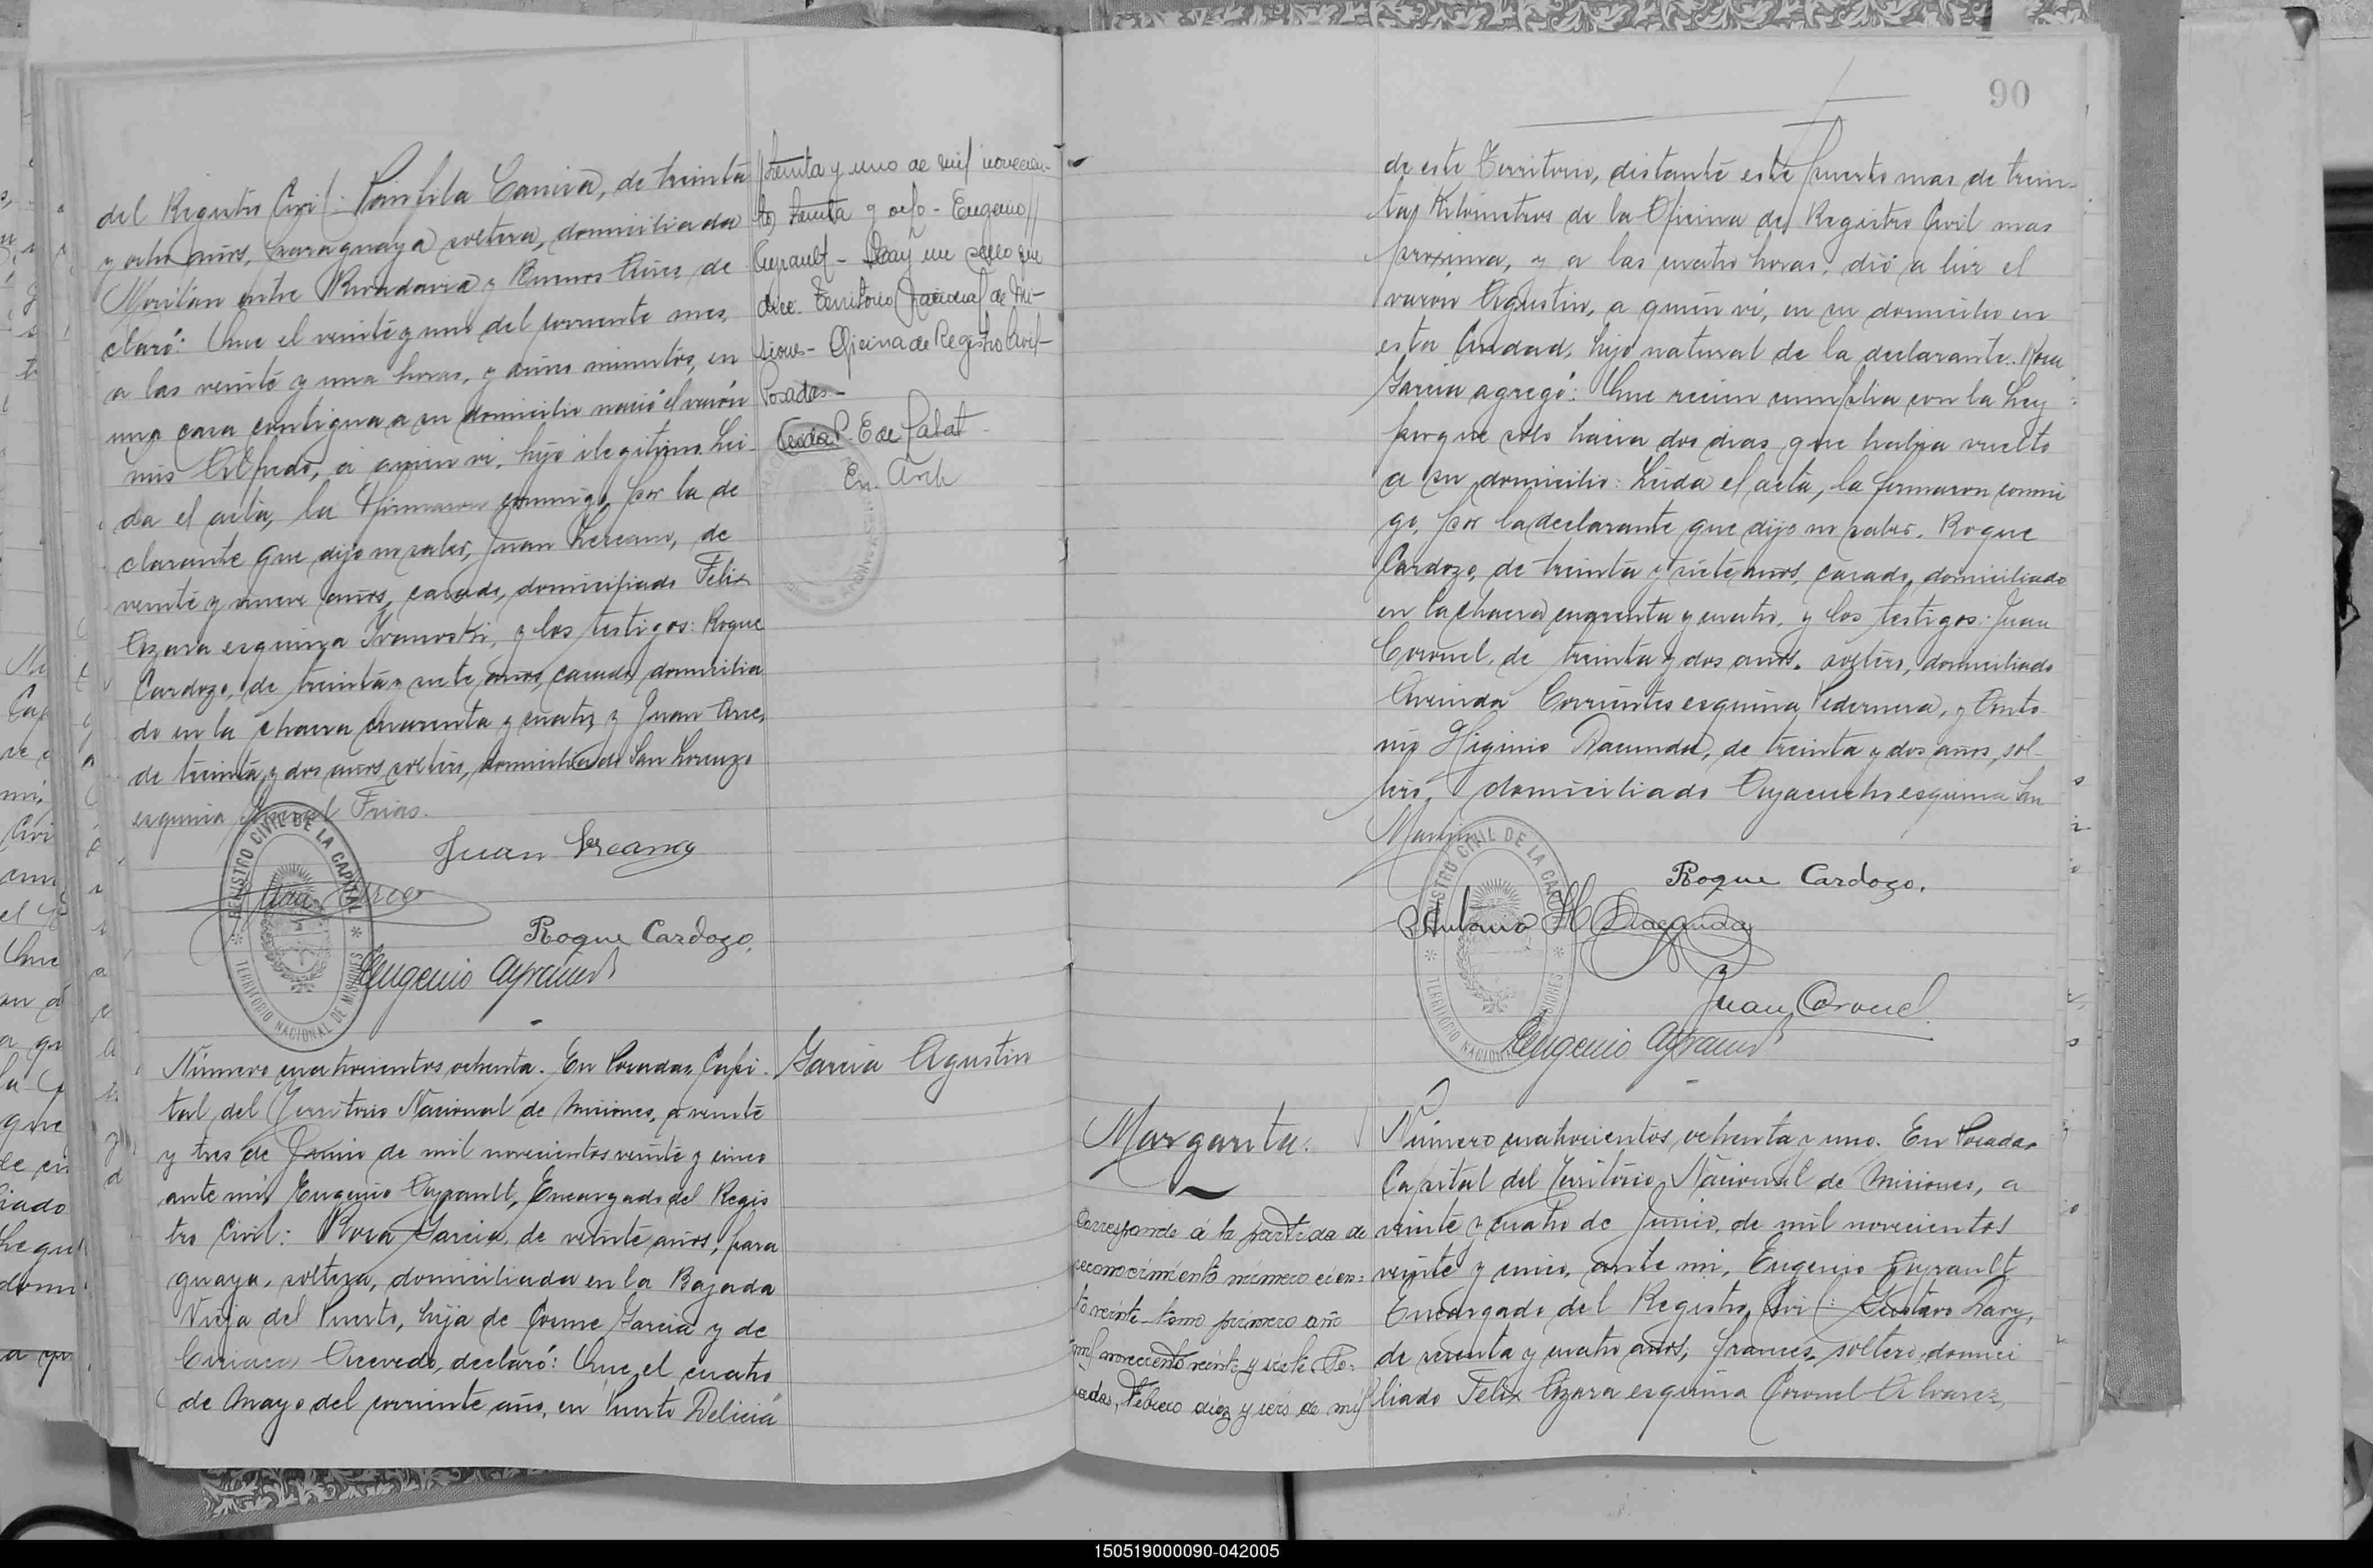 del Registro Civil: Panfila Caniza, de treinta
y ocho años, paraguaya soltera, domiciliada
entre Rivadavia y Buenos Aires, de
claró: Que el veinte y uno del corriente mes,
a las veinte y una horas, y cinco minutos, en
una casa contigua a su domicilio nació el varón
Luis Alfredo, a quien vi, hijo ilegitimo. Lei
da el acta, la firmaron conmigo, por la de
clarante que dijo no saber, Juan Lezcano, de
veinte y nueve años, casado, domiciliado Felix
Azara esquina Ivanoski, y los testigos: Roque
Cardozo, de treinta y siete años, casado, domicilia
do en la chacra cuarenta y cuatro, y Juan Arce,
de treinta y dos años, soltero, domiciliado San Lorenzo
esquina Frias.
Juan Lezcano
Juan Arce
Roque Cardozo.
Eugenio Ayrault
REGISTRO CIVIL DE LA CAPITAL
TERRITORIO NACIONAL DE MISIONES
treinta y uno de mil novecien-
tos treinta y ocho - Eugenio
Ayrault - Hay un sello que
dice: Territorio Nacional de Mi-
siones - Oficina de Registro Civil -
Posadas -
P. E de
En. Arch
Número cuatrocientos ochenta. En Posadas, Capi
tal del Territorio Nacional de Misiones, a veinte
y tres de Junio de mil novecientos veinte y cinco
ante mi, Eugenio Ayrault, Encargado del Regis
tro Civil: Rosa Garcia, de veinte años, para
guaya, soltera, domiciliada en la Bajada
Vieja del Puerto, hija de Cosme Garcia y de
Ciriaca Acevedo, declaró: Que el cuatro
de Mayo del corriente año, en Puerto Delicia
Garcia Agustin
90
de este Territorio, distante este puerto mas de trein-
ta Kilómetros de la Oficina de Registro Civil mas
próxima, y a las cuatro horas, dió a luz el
varón Agustin, a quien vi, en su domicilio en
esta Ciudad, hijo natural de la declarante. Rosa
Garcia agregó: Que recien cumplia con la Ley
porque solo hacia dos dias que habia vuelto
a su domicilio: Leida el acta, la firmaron conmi
go, por la declarante que dijo no saber, Roque
Cardozo, de treinta y siete años, casado, domiciliado
en la chacra cuarenta y cuatro, y los testigos: Juan
Coronel, de treinta y dos años, soltero, domiciliado
Avenida Corrientes esquina Pedernera, y Anto
nio Higinio Dacunda, de treinta y dos años, sol
tero, domiciliado Ayacucho esquina San
Martin
Roque Cardozo.
Antonio H Dacunda
Juan Coronel
Eugenio Ayrault
REGISTRO CIVIL DE LA CAPITAL
TERRITORIO NACIONAL DE MISIONES
Margarita.
Corresponde á la partida de
reconocimiento número cien-
to veinte tomo primero año
mil novecientos veinte y siete. Po-
sadas, Febrero diez y seis de mil
Número cuatrocientos ochenta y uno. En Posadas
Capital del Territorio Nacional de Misiones, a
veinte y cuatro de Junio, de mil novecientos
veinte y cinco, ante mi, Eugenio Ayrault
Encargado del Registro Civil: Gustavo Dary,
de y cuatro años, francés, soltero, domici
liado Felix Azara esquina Coronel Alvarez,
150519000090-042005